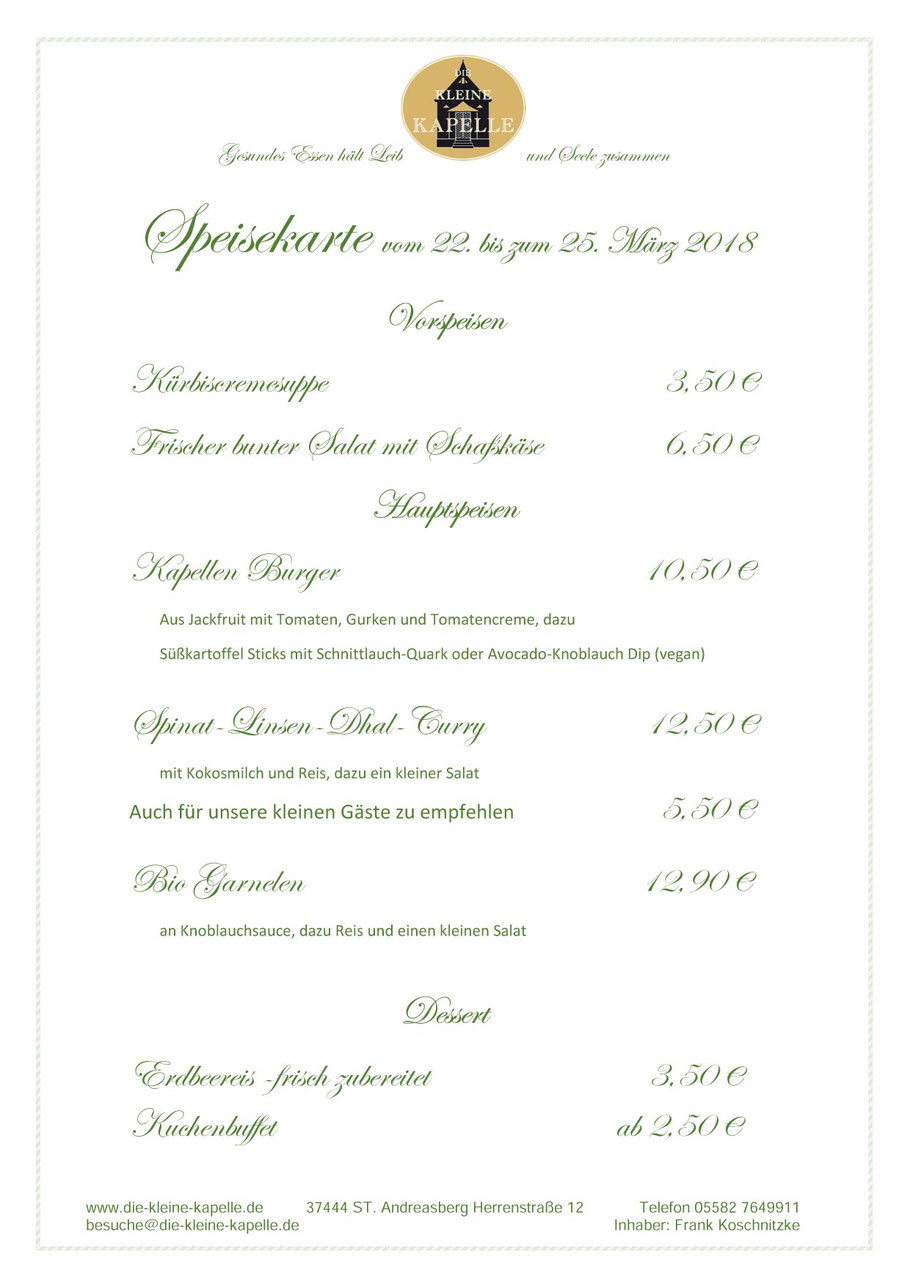 DIE
KLEINE
KAPELLE
Gesundes Essen hält Leib und Seele zusammen
Speisekarte vom 22. bis zum 25. März 2018
Vorspeisen
Kürbiscremesuppe 3,50 €
Frischer bunter Salat mit Schafskäse 6,50 €
Hauptspeisen
Kapellen Burger 10,50 €
Aus Jackfruit mit Tomaten, Gurken und Tomatencreme, dazu
Süßkartoffel Sticks mit Schnittlauch-Quark oder Avocado-Knoblauch Dip (vegan)
Spinat-Linsen-Dhal-Curry 12,50 €
mit Kokosmilch und Reis, dazu ein kleiner Salat
Auch für unsere kleinen Gäste zu empfehlen 5,50 €
Bio Garnelen 12,90 €
an Knoblauchsauce, dazu Reis und einen kleinen Salat
Dessert
Erdbeereis -frisch zubereitet 3,50 €
Kuchenbuffet ab 2,50 €
www.die-kleine-kapelle.de 37444 ST. Andreasberg Herrenstraße 12 Telefon 05582 7649911
besuche@die-kleine-kapelle.de Inhaber: Frank Koschnitzke